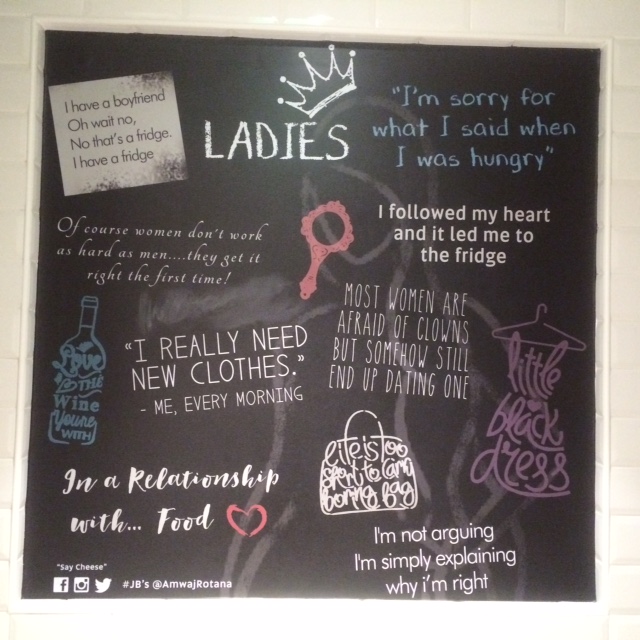 I have a boyfriend
Oh wait no,
No that's a fridge.
I have a fridge
LADIES
"I'm sorry for
what I said when
I was hungry"
Of course women don't work
as hard as men....they get it
right the first time!
I followed my heart
and it led me to
the fridge
MOST WOMEN ARE
AFRAID OF CLOWNS
BUT SOMEHOW STILL
END UP DATING ONE
"I REALLY NEED
NEW CLOTHES."
- ME, EVERY MORNING
Love
THE
Wine
You're
WITH
little
black
dress
life is too
short to carry
boring bag
In a Relationship
with... Food
I'm not arguing
I'm simply explaining
why i'm right
"Say Cheese"
#JB's @AmwajRotana